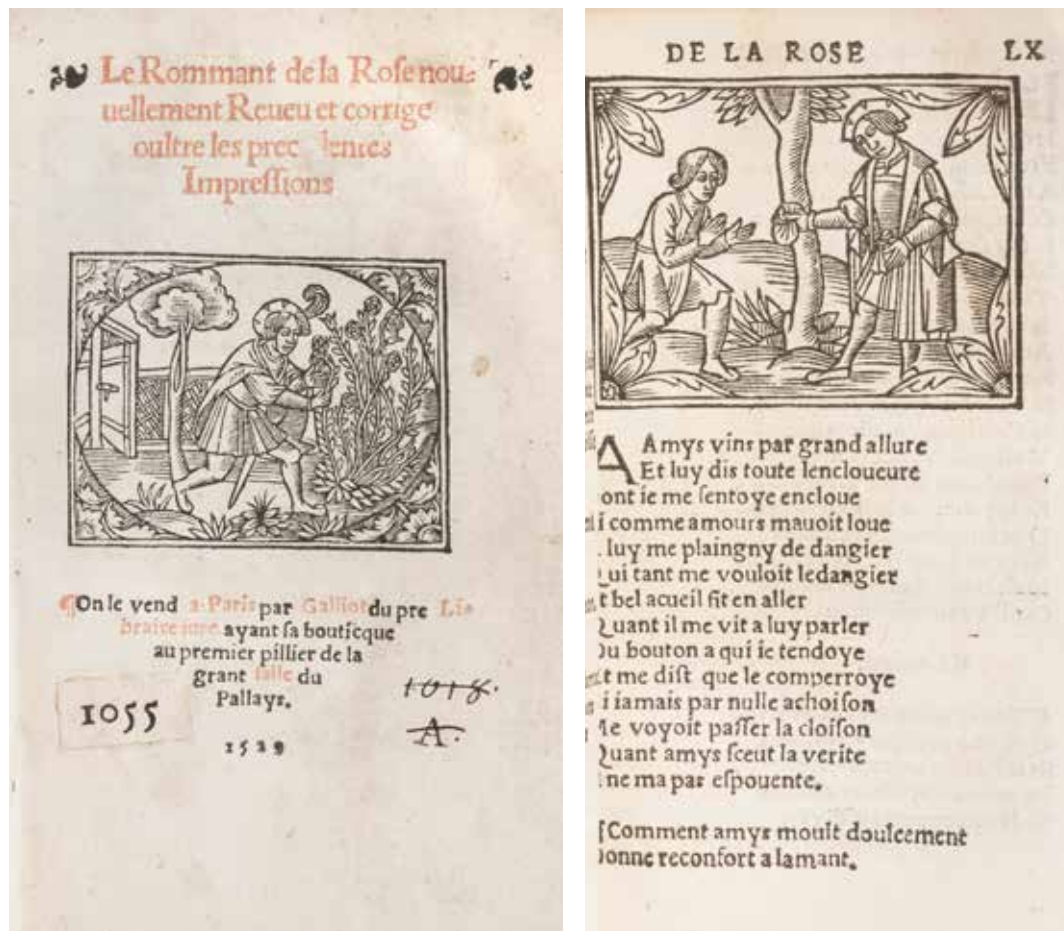 Le Rommant de la Rose nou-
uellement Reueu et corrige
oultre les prec lentes
Impressions
On le vend a Paris par Galliot du pre Li-
braire iure ayant sa bouticque
au premier pillier de la
grant salle du
Pallays.
1055
1018.
A.
1529
DE LA ROSE LX
A Amys vins par grand allure
Et luy dis toute lencloueure
ont ie me sentoye encloue
i comme amours mauoit loue
luy me plaingny de dangier
ui tant me vouloit ledangier
t bel acueil fit en aller
Quant il me vit a luy parler
Du bouton a qui ie tendoye
Et me dist que le comperroye
i iamais par nulle achoison
e voyoit passer la cloison
Quant amys sceut la verite
ne ma par espouente.
Comment amys moult doulcement
onne reconfort a lamant.